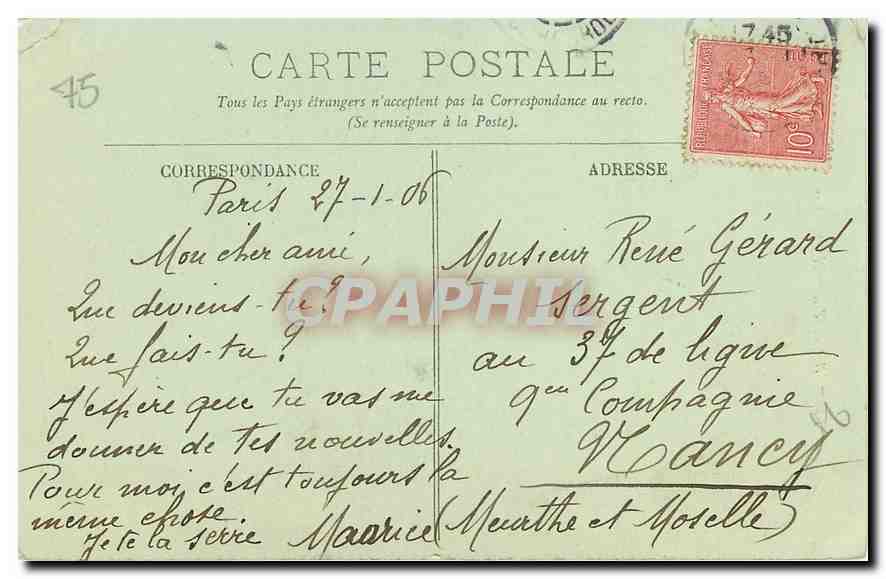 CARTE POSTALE
Tous les Pays étrangers n'acceptent pas la Correspondance au recto.
(Se renseigner à la Poste).
75
7 45
REPUBLIQUE FRANÇAISE
10c
CORRESPONDANCE
Paris 27-1-06
Mon cher ami,
Que deviens-tu?
Que fais-tu?
J'espère que tu vas me
donner de tes nouvelles.
Pour moi c'est toujours la
même chose
Je te la serre Maurice
ADRESSE
Monsieur René Gérard
Sergent
au 37 de ligne
9me Compagnie
Nancy
(Meurthe et Moselle)
CPAPHIL